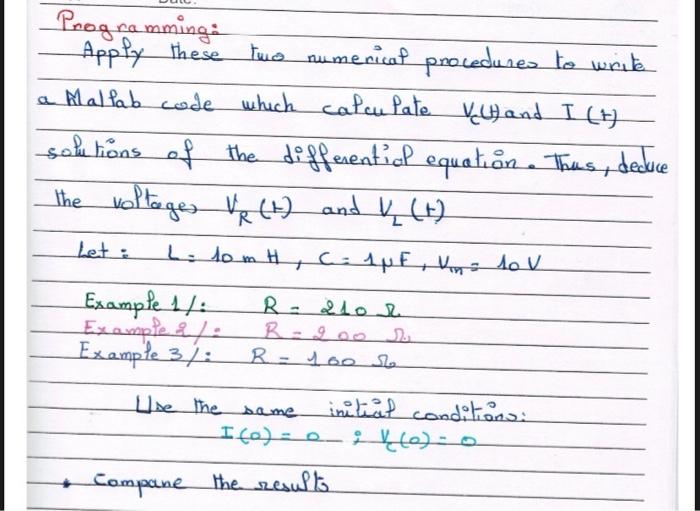 Programming:
Apply these two numerical procedures to write
a Matlab code which calculate Vc(t) and I(t)
solutions of the differential equation. Thus, deduce
the voltages V_R(t) and V_L(t)
Let: L = 10 mH, C = 1μF, Vm = 10 V
Example 1/: R = 210 Ω
Example 2/: R = 200 Ω
Example 3/: R = 100 Ω
Use the same initial conditions:
I(0) = 0 ; Vc(0) = 0
* Compare the results